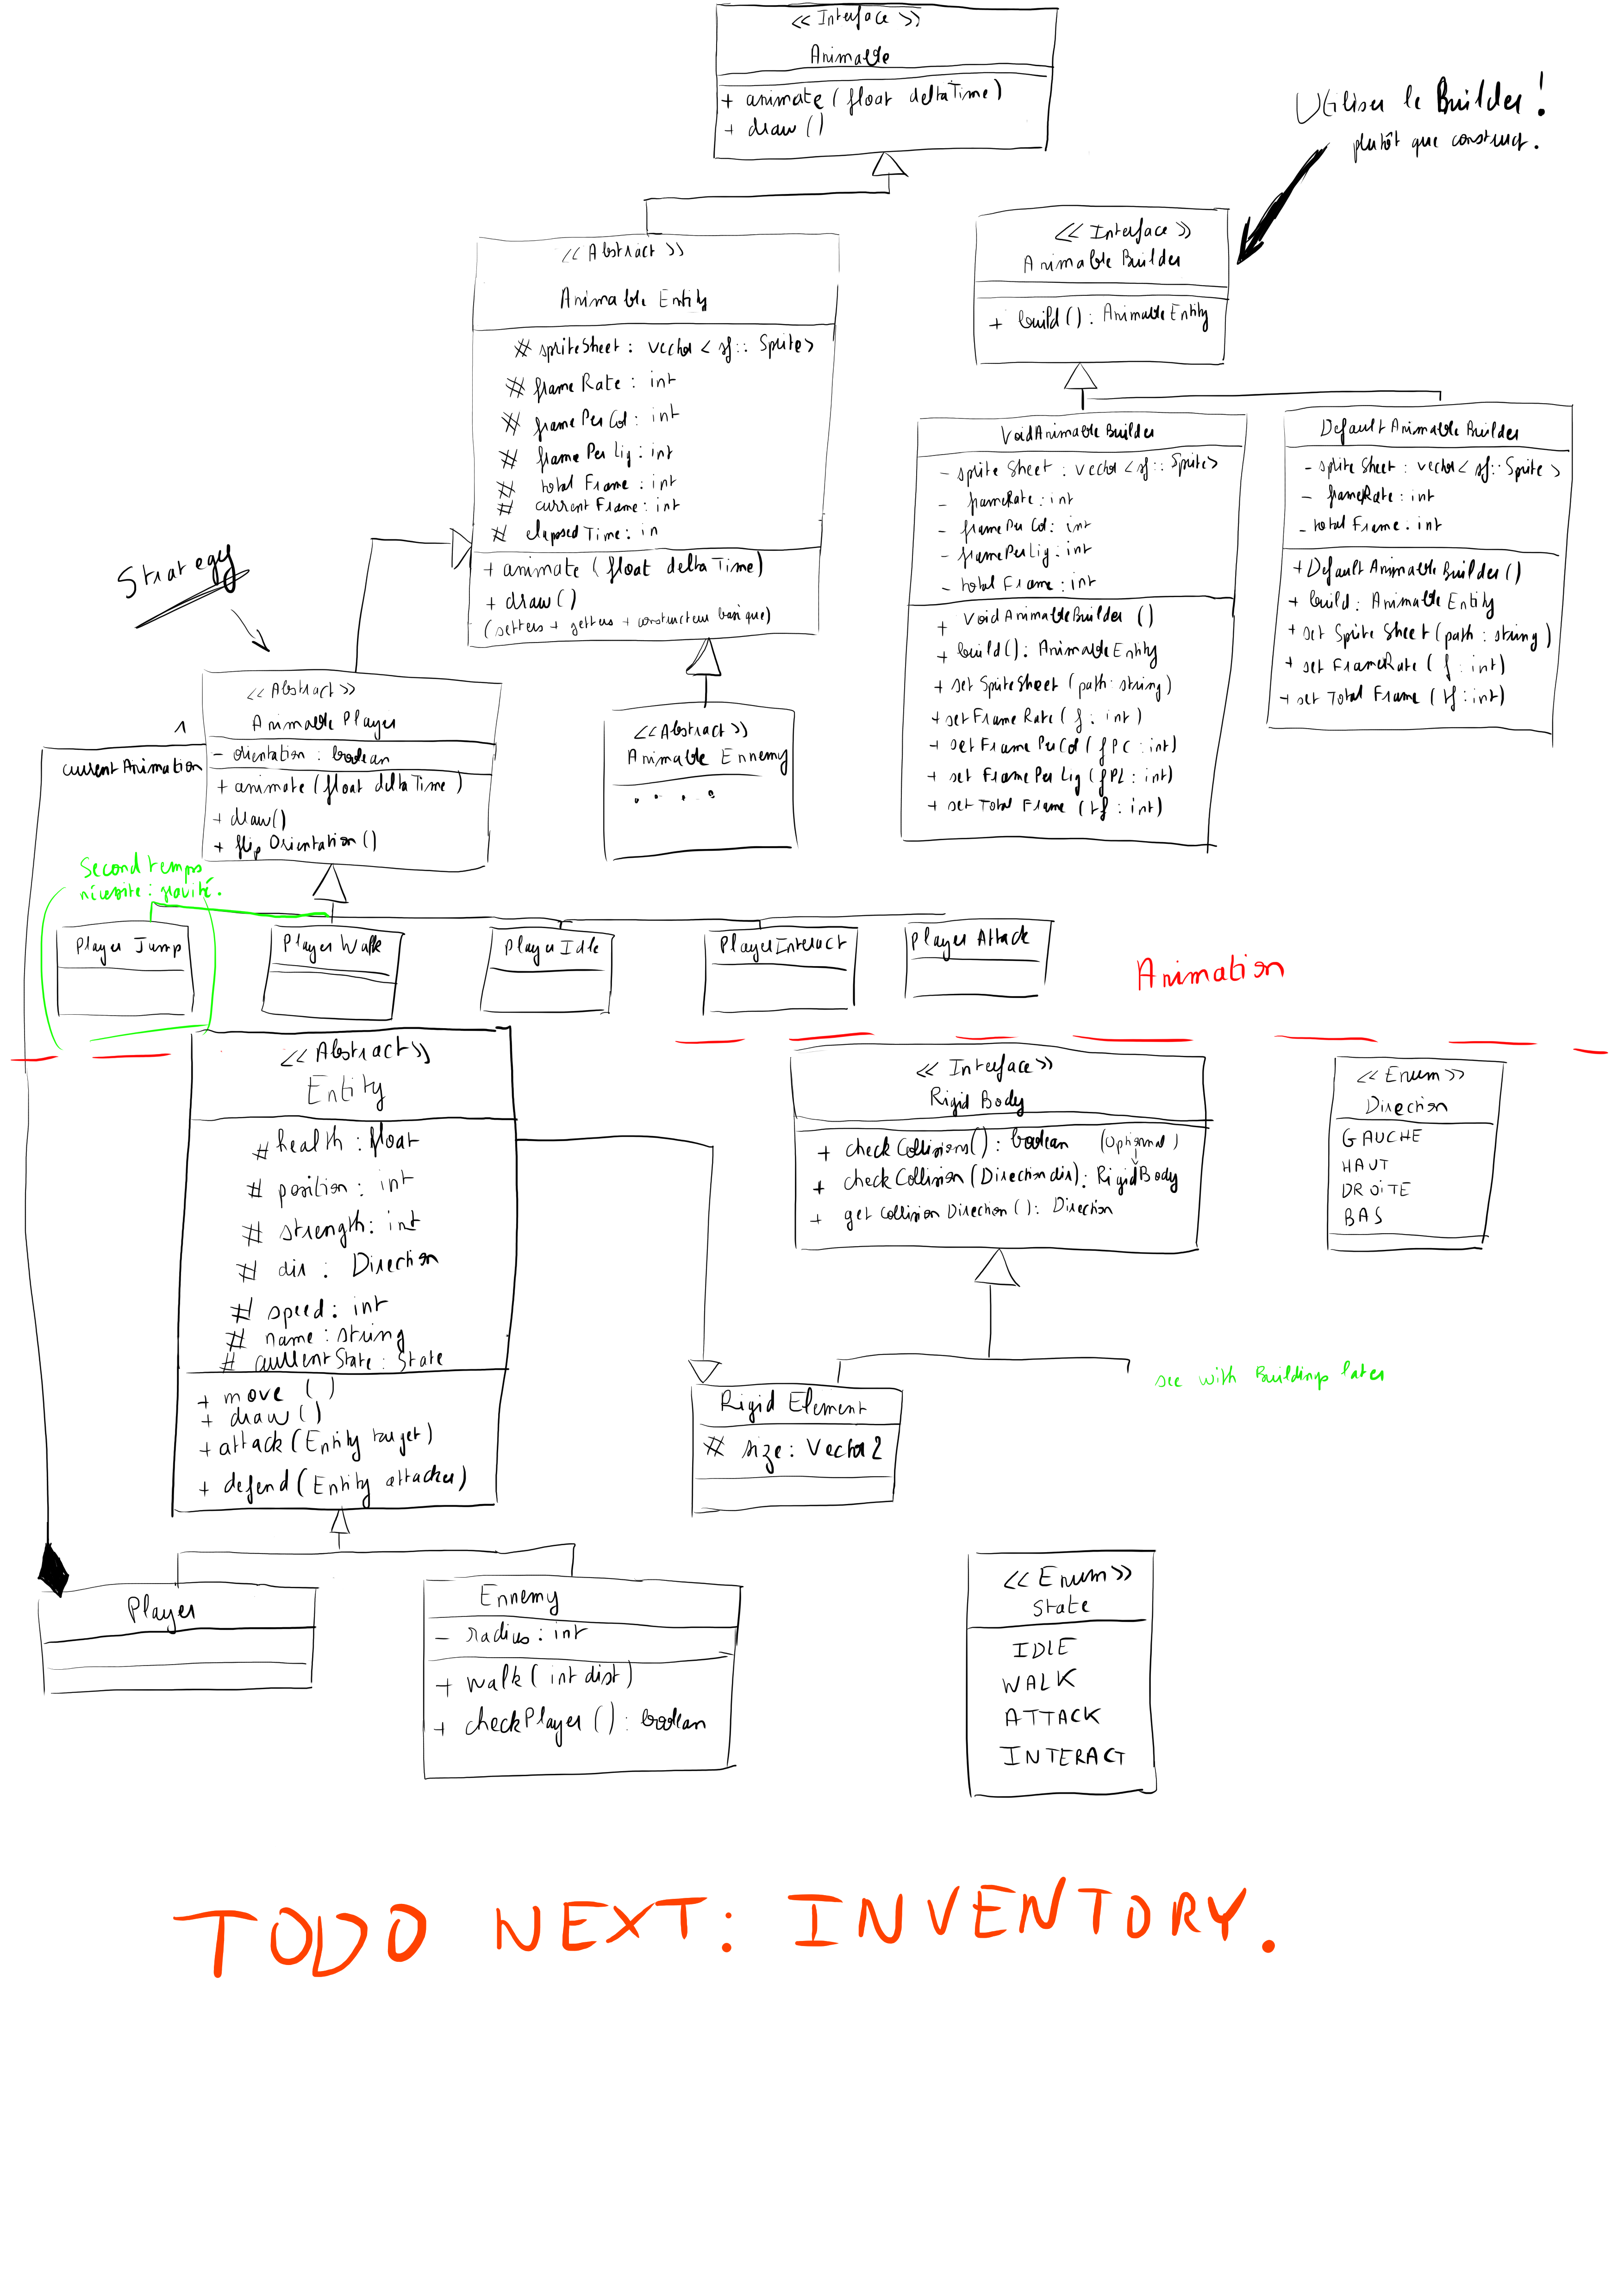 << Interface >>
Animable
+ animate (float deltaTime)
+ draw ()
Utiliser le Builder !
plutôt que construct.
<< Abstract >>
Animable Entity
# spriteSheet : vector < sf :: Sprite>
# frameRate : int
# framePerCol : int
# framePerLig : int
# totalFrame : int
# currentFrame : int
# elapsedTime : in
+ animate (float deltaTime)
+ draw ()
(setters + getters + constructeur basique)
<< Interface >>
Animable Builder
+ build () : AnimableEntity
VoidAnimableBuilder
- spriteSheet : vector < sf :: Sprite>
- frameRate : int
- framePerCol : int
- framePerLig : int
- totalFrame : int
+ VoidAnimableBuilder ()
+ build () : AnimableEntity
+ setSpriteSheet (path : string)
+ setFrameRate (f : int)
+ setFramePerCol (fPC : int)
+ setFramePerLig (fPL : int)
+ setTotalFrame (tf : int)
DefaultAnimableBuilder
- spriteSheet : vector < sf :: Sprite >
- frameRate : int
- totalFrame : int
+ DefaultAnimableBuilder ()
+ build : AnimableEntity
+ setSpriteSheet (path : string)
+ setFrameRate (f : int)
+ setTotalFrame (tf : int)
Strategy
<< Abstract >>
Animable Player
- orientation : boolean
+ animate (float deltaTime)
+ draw()
+ flipOrientation ()
1
currentAnimation
<< Abstract >>
Animable Ennemy
. . . .
Second temps
nécessite : gravité.
Player Jump
Player Walk
Player Idle
PlayerInteract
Player Attack
Animation
<< Abstract >>
Entity
# health : float
# position : int
# strength : int
# dir : Direction
# speed : int
# name : string
# currentState : State
+ move ()
+ draw ()
+ attack (Entity target)
+ defend (Entity attacker)
<< Interface >>
Rigid Body
+ checkCollisions() : boolean (Optionnal)
+ checkCollision (Direction dir) : RigidBody
+ getCollisionDirection () : Direction
<< Enum >>
Direction
GAUCHE
HAUT
DROITE
BAS
see with Buildings later
Rigid Element
# size : Vector2
Player
Ennemy
- radius : int
+ walk ( int dist)
+ checkPlayer () : boolean
<< Enum >>
State
IDLE
WALK
ATTACK
INTERACT
TODO NEXT : INVENTORY.